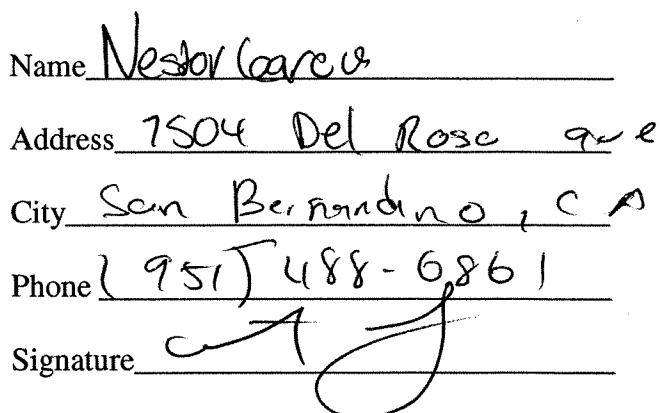 Name Nestor Garcia
Address 7504 Del Rosa ave
City San Bernardino, CA
Phone (951) 488-6861
Signature